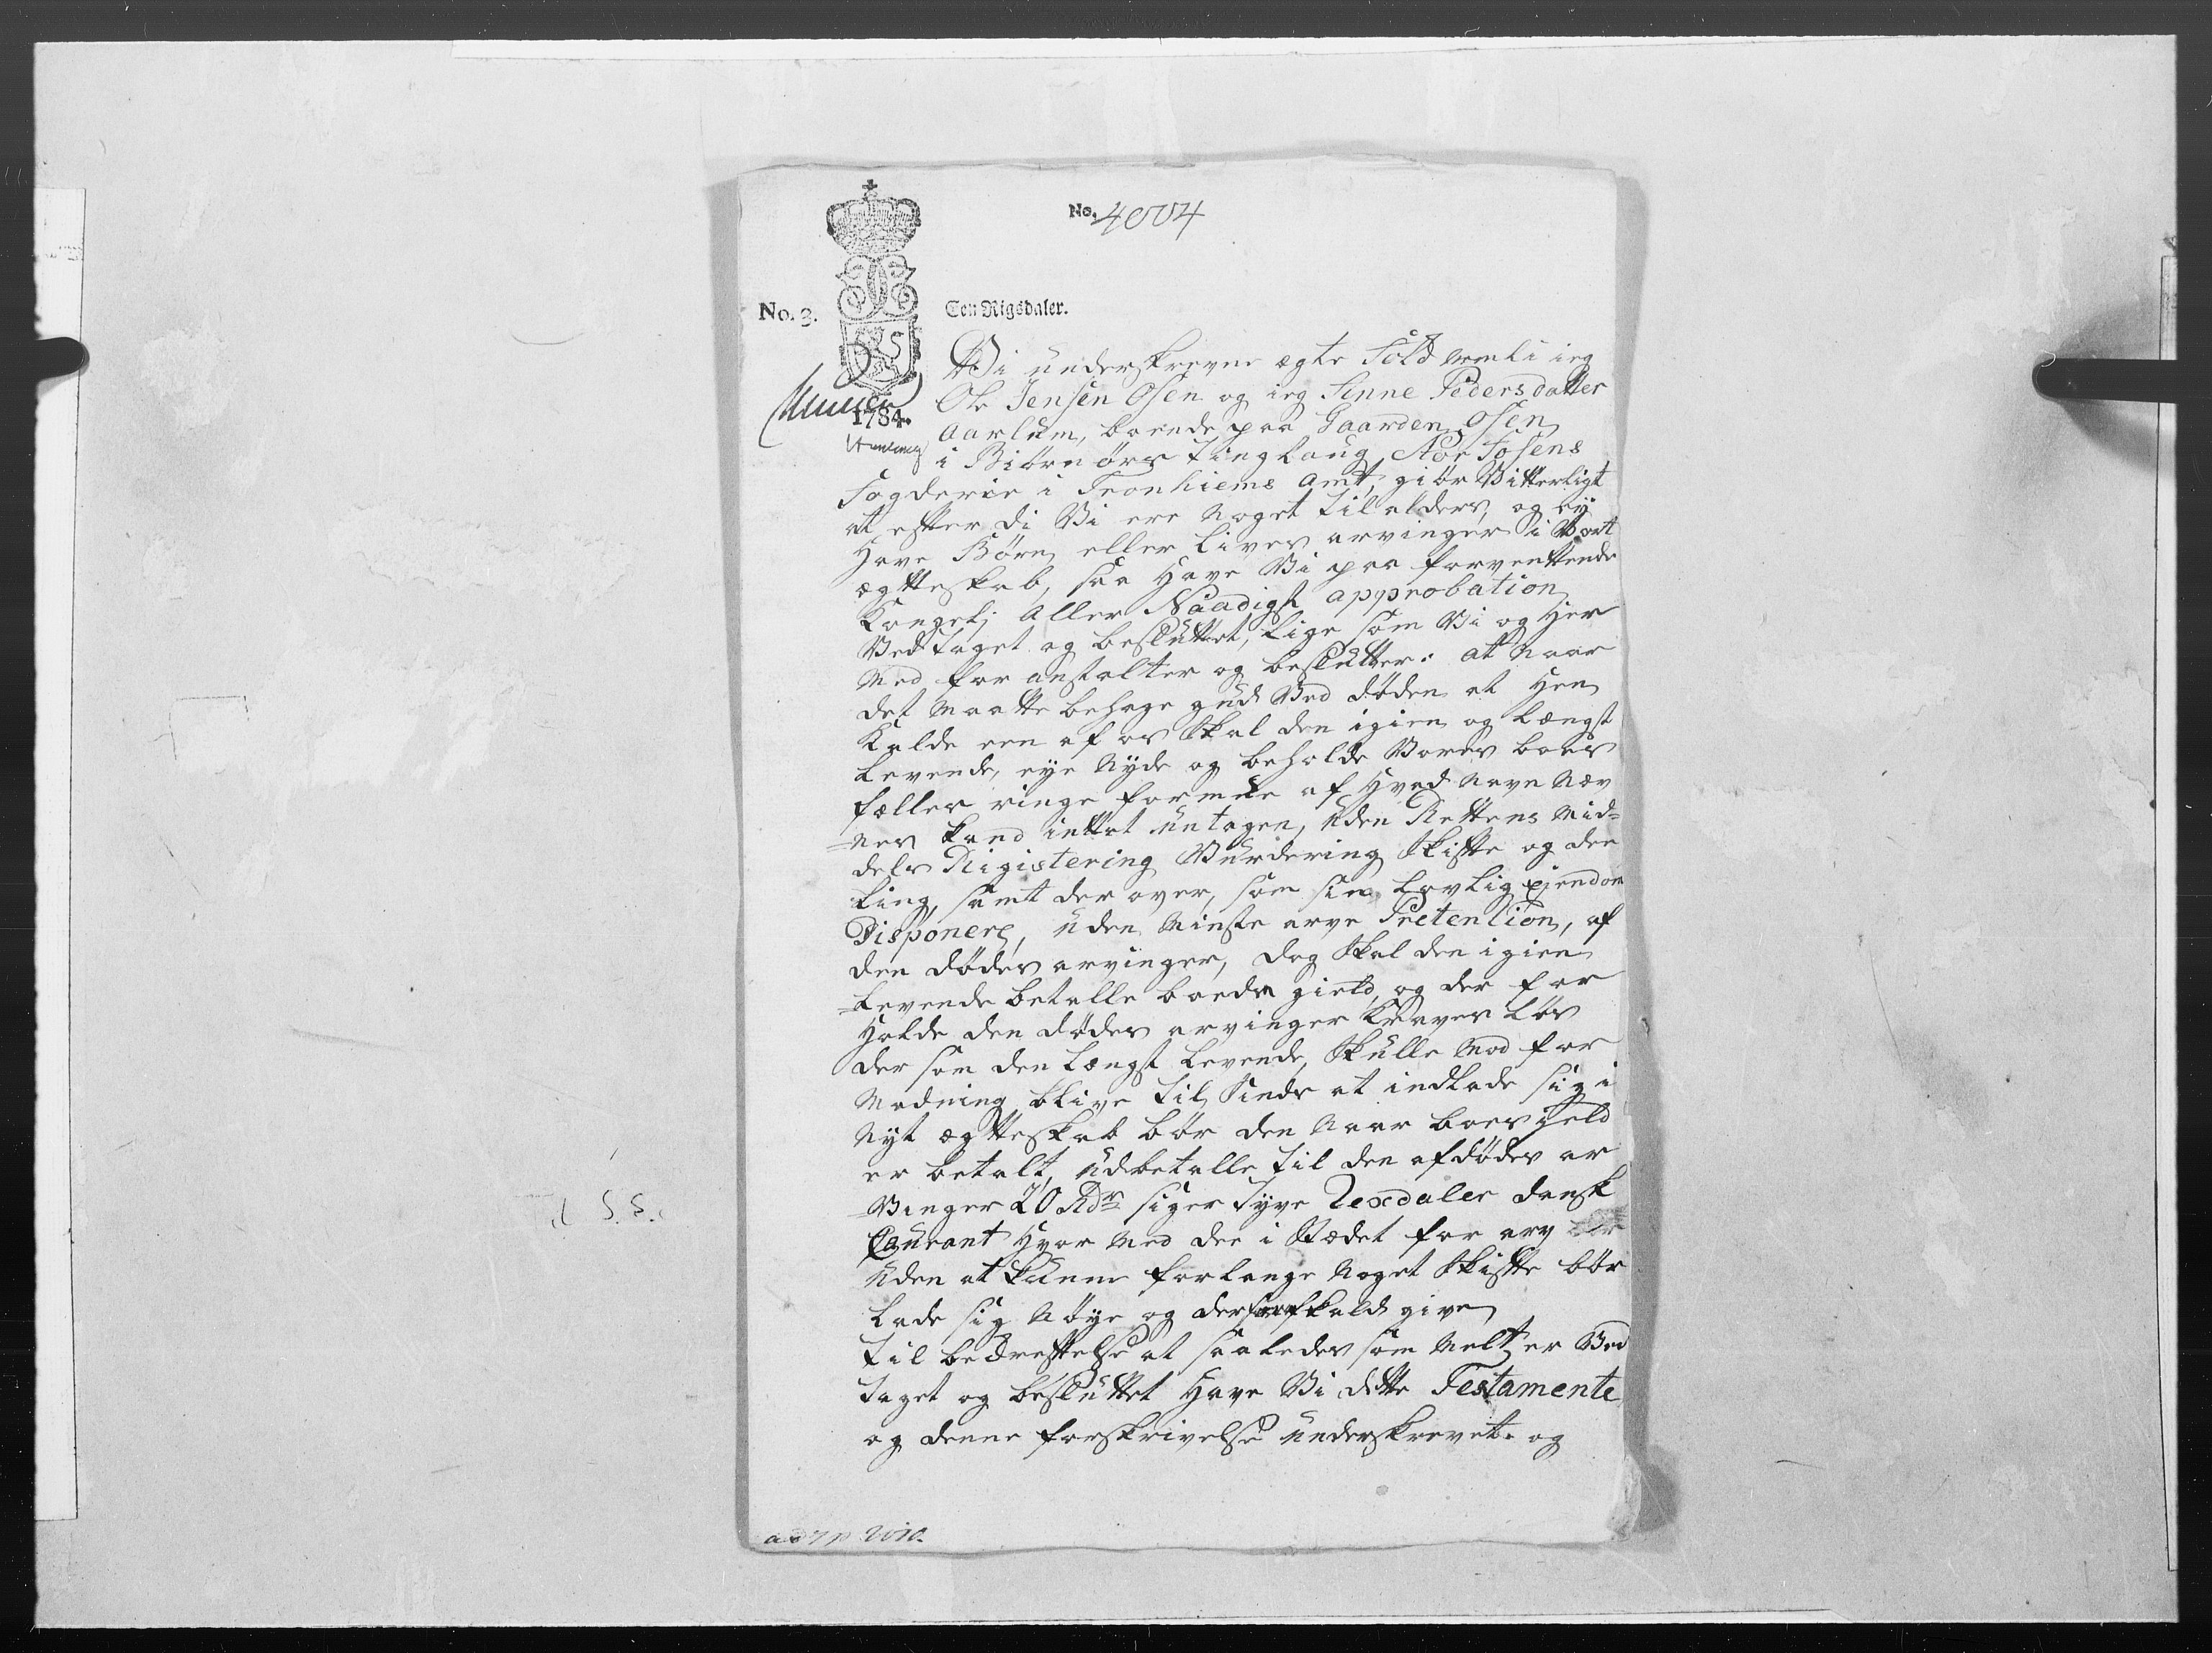 No. 4004
No. 3.
Een Rigsdaler.
1784.
Wi underskrevne ægte Folk nemlig ieg
Ole Jensen Osen og ieg Sinne Pedersdatter
Aarlum, boende paa Gaarden Osen
i Biörnörs Tinglaug, Nor Fosens
Fogderie i Tronhiems Amt, giör Vitterligt
at efter di Vi ere noget til alders, og ey
Have Börn eller Lives arvinger i Vort
ægtteskab, saa Have Vi paa forventtende
Kongel: Aller Naadigst approbation
Vedtaget og besluttet, lige som Vi og Her
Med for anstalter og beslutter: at naar
det Maatte behage gud Ved döden at Hen
Kalde een af os Skal den igien og Længst
Levende, eye Nyde og beholde Vores boes
fælles ringe formue af Hvad Navn Næv
=nes kand inttet untagen, uden Rettens Mid=
dels Rigistering Vurdering Skiftte og dee
ling, samt der over, som sin Lovlig Ejendom
Disponere, uden Minste arve Pretention, af
den dödes arvinger, dog Skal den igien
=Levende betalle boeds gield, og der for
Holde den dödes arvinger Kraves lös
der som den Længst Levende, Skulle Mod for
Modning blive til Sinds at indlade sig i
Nyt ægtteskab bör den Naar boes gield
er betalt, udbetalle til den afdödes ar
=Vinger 20 Rdr siger Tyve Rexdaler dansk
Courant Hvor Med dee i Stædet for arv
uden at kunne forlange Noget Skiftte bör
Lade sig Nöye og afkald give
til bedrefttelse at saaledes som Melt er Ved
taget og besluttet Have Vi dette Testamente
og denne forskrivelse underskrevet. og